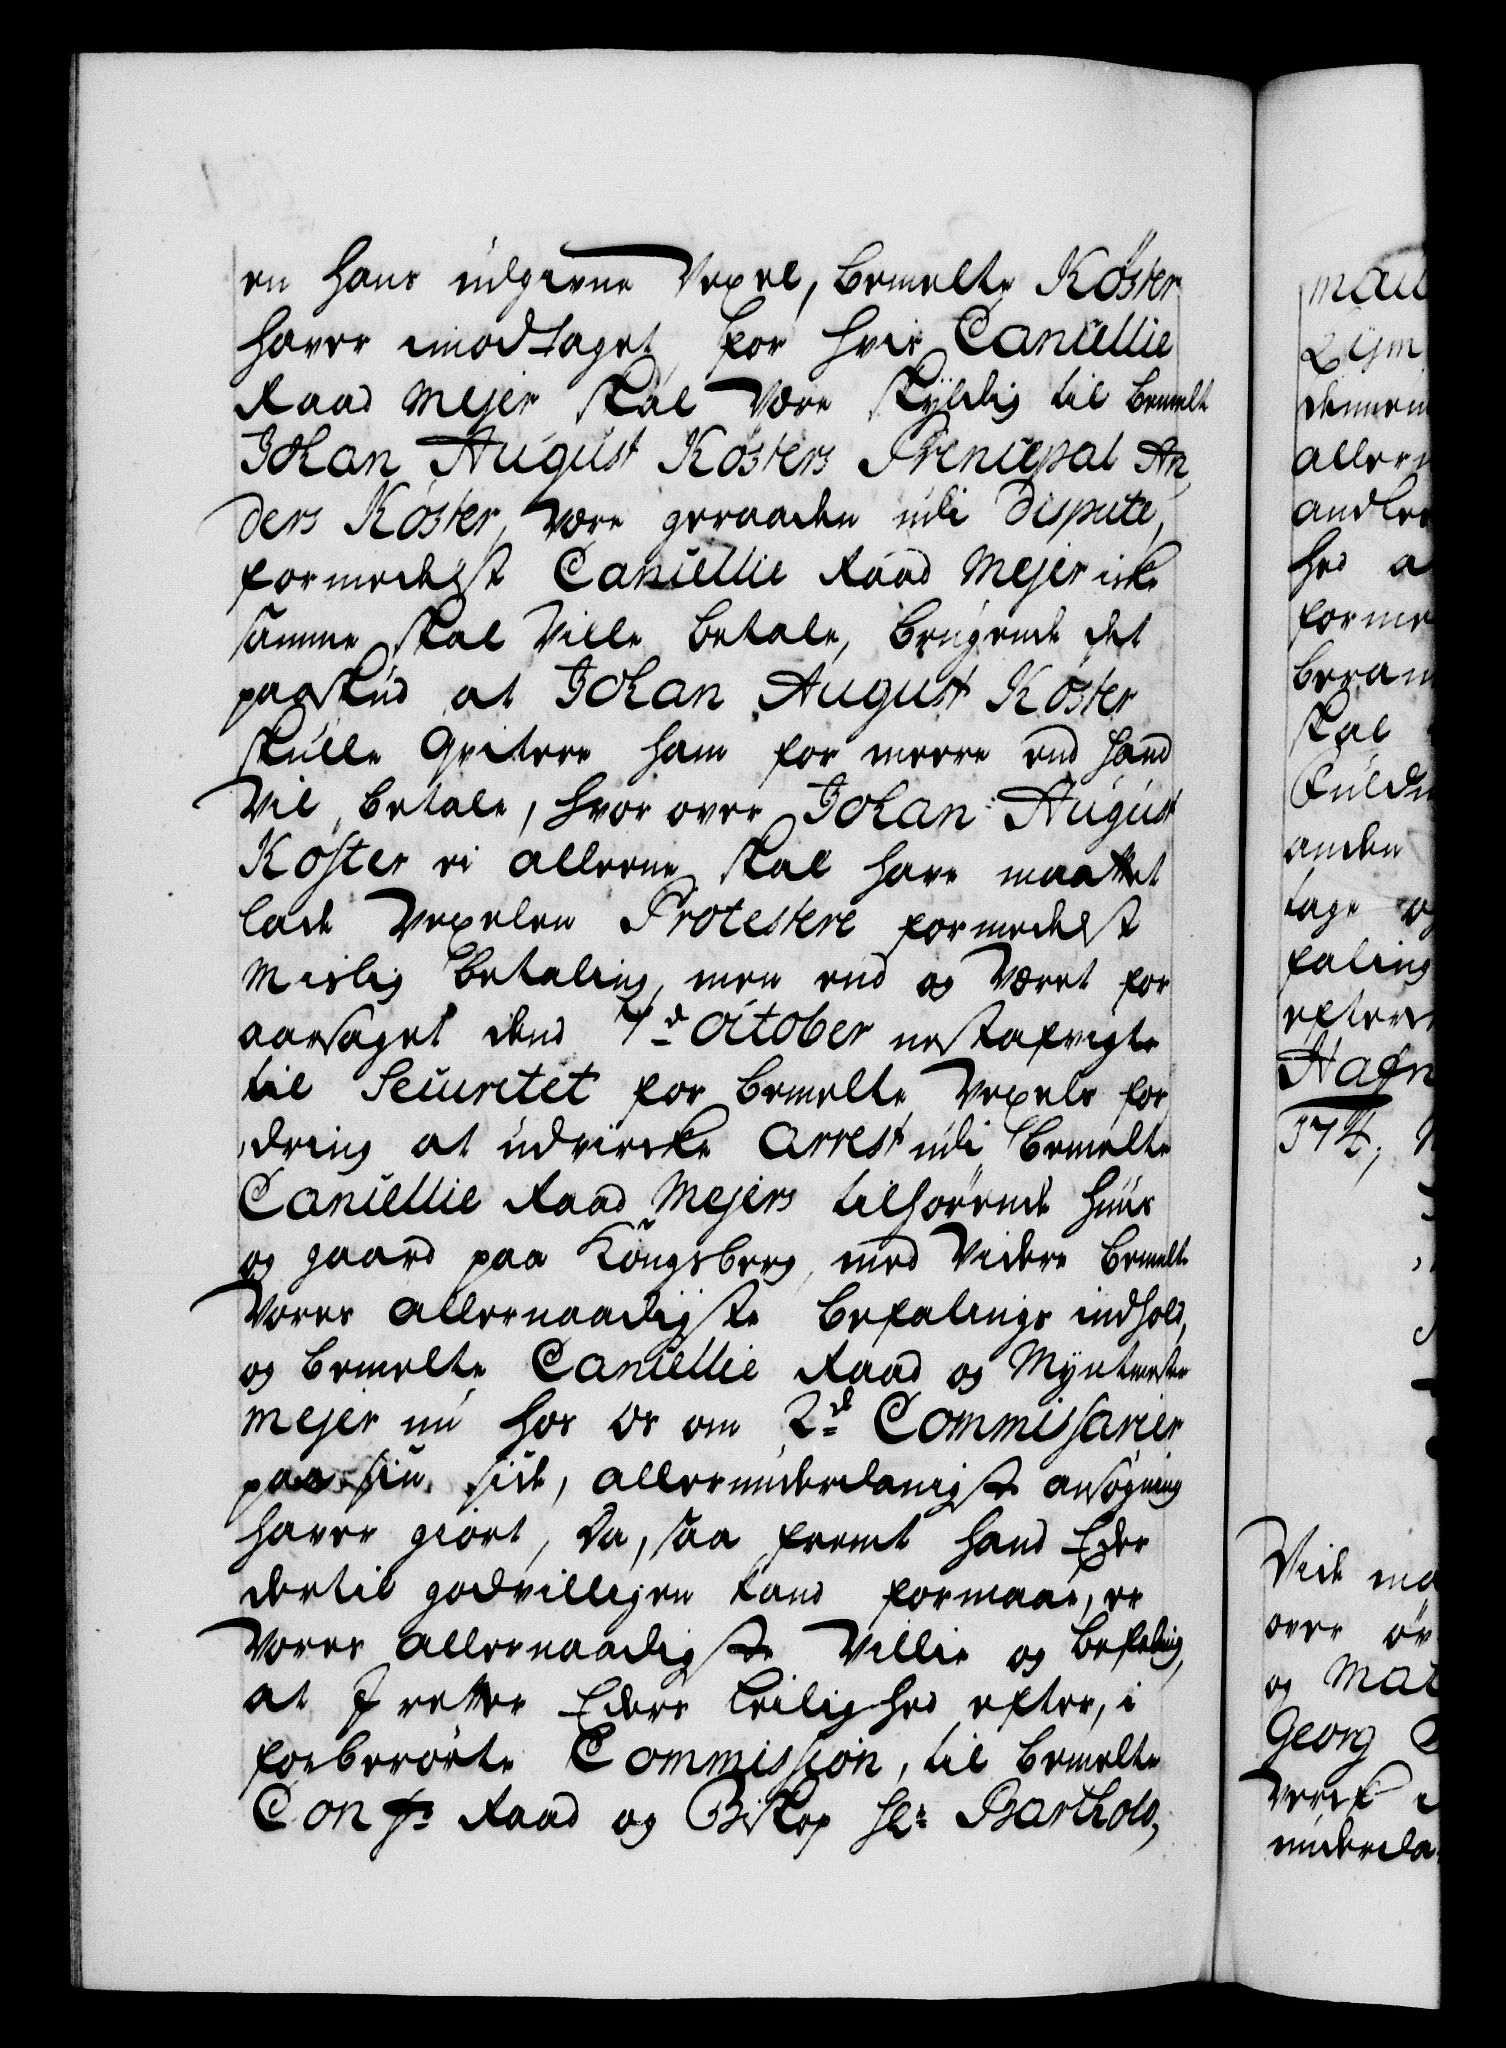 en hans udgivne Vexel, bemelte Køster
haver imodtaget, for hvis Cancellie
Raad Mejer skal være skyldig til bemelt
Johan August Køsters Principal An,
ders Køster, være geraaden udi Dispute,
formedelst Cancellie Raad Mejer icke
samme skal ville betale, brugende det
paaskud at Johan August Køster
skulle qvitere ham for meere end hand
vil betale, hvor over Johan August
Køster ei alleene skal have maattet
lade Vexelen Protestere formedelst
Mislig betaling, men end og været for
aarsaget dend 7de October nestafvigte
til Securitet for bemelte Vexels for,
dring at udvircke Arrest udi bemelte
Cancellie Raad Mejers tilhørende huus
og gaard paa Kongsberg, med videre bemelte
Vores allernaadigste befalings indhold,
og bemelte Cancellie Raad og Myntmester
Mejer nu hos os om 2de Commissarier
paa sin side, allerunderdanigst ansøgning
haver giort, Da, saa fremt hand Eder
dertil godvilligen kand formaae, er
Vores allernaadigste Villie og befaling,
at I retter Eders leilighed efter, i
forberørte Commission, til bemelte
Confs Raad og Biskop Hr: Barthold,
mau
allern
hed a
forme
skal
anden
tage og
faling
Hafn
1714,
Vide ma
over
og Mat
Georg
underda